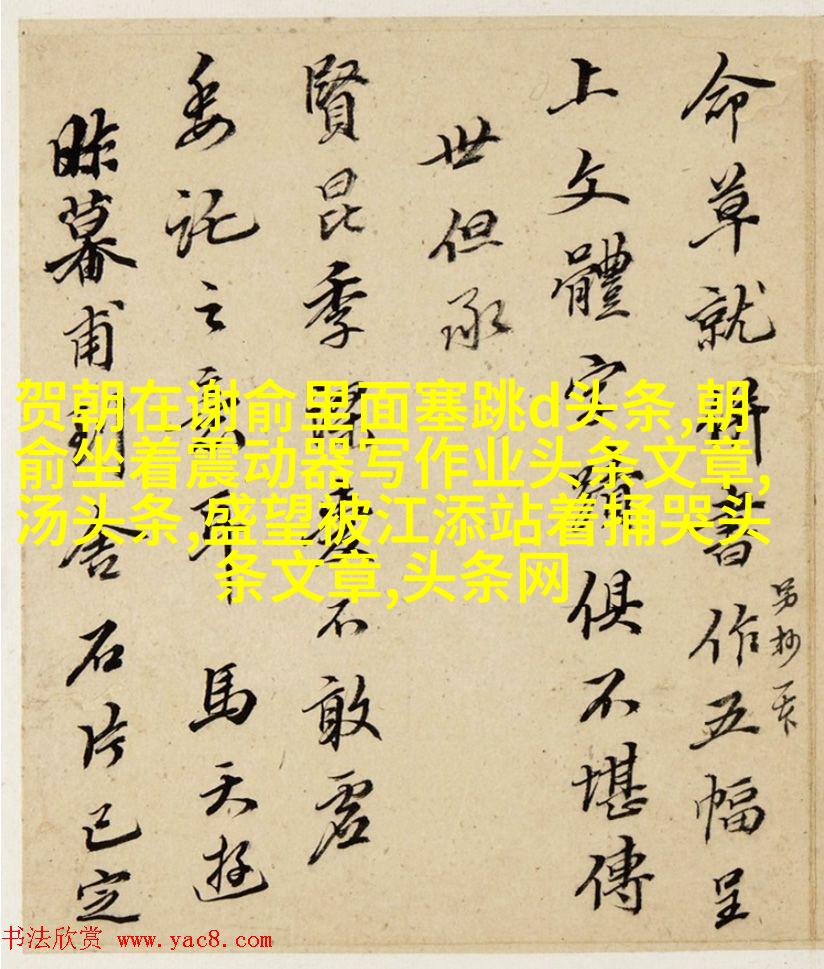 命草就并書作五幅呈
上文體字蹟俱不堪傳
世但承
賢昆季愛不敢虛
委託之意耳 馬天游
暮甫舍石片已定
另抄
贺朝在谢俞里面塞跳d头条,朝
俞坐着震动器写作业头条文章,
汤头条,盛望被江添站着捅哭头
条文章,头条网
书法欣赏 www.yac8.com